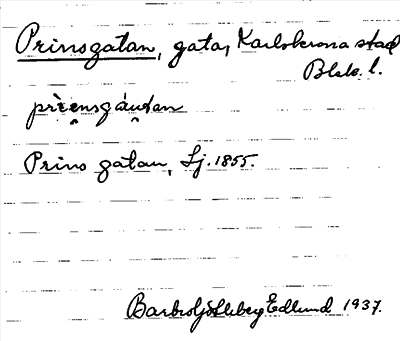 Prinsgatan, gata, Karlskrona stad
Blek. l.
prìensgáutan
Prins gatan, Lj. 1855.
Barbro Edlund 1937.